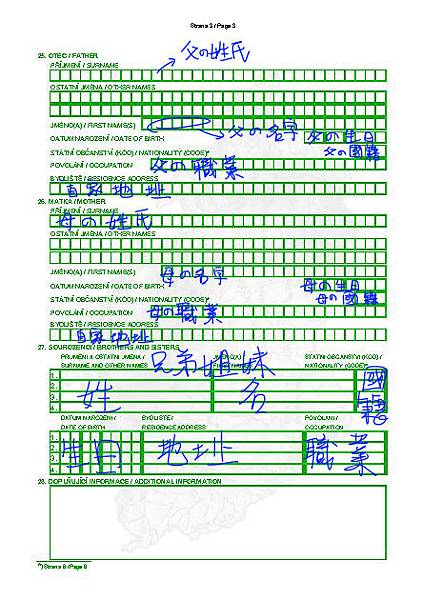 Strana 5 / Page 5
25. OTEC / FATHER
PŘÍJMENÍ / SURNAME
父の姓氏
OSTATNÍ JMÉNA / OTHER NAMES
JMÉNO(A) / FIRST NAME(S)
父の名字
DATUM NAROZENÍ / DATE OF BIRTH
父の生日
STÁTNÍ OBČANSTVÍ (KÓD) / NATIONALITY (CODE)*
父の國籍
POVOLÁNÍ / OCCUPATION
父の職業
BYDLIŠTĚ / RESIDENCE ADDRESS
自家地址
26. MATKA / MOTHER
PŘÍJMENÍ / SURNAME
母の姓氏
OSTATNÍ JMÉNA / OTHER NAMES
JMÉNO(A) / FIRST NAME(S)
母の名字
DATUM NAROZENÍ / DATE OF BIRTH
母の生日
STÁTNÍ OBČANSTVÍ (KÓD) / NATIONALITY (CODE)*
母の國籍
POVOLÁNÍ / OCCUPATION
母の職業
BYDLIŠTĚ / RESIDENCE ADDRESS
自家地址
27. SOUROZENCI / BROTHERS AND SISTERS
兄弟姐妹
PŘÍJMENÍ A OSTATNÍ JMÉNA / SURNAME AND OTHER NAMES
JMÉNO(A) / FIRST NAME(S)
STÁTNÍ OBČANSTVÍ (KÓD) / NATIONALITY (CODE)*
1.
2.
3.
4.
姓 名 國籍
DATUM NAROZENÍ / DATE OF BIRTH
BYDLIŠTĚ / RESIDENCE ADDRESS
POVOLÁNÍ / OCCUPATION
1.
2.
3.
4.
生日 地址 職業
28. DOPLŇUJÍCÍ INFORMACE / ADDITIONAL INFORMATION
*) Strana 8 / Page 8